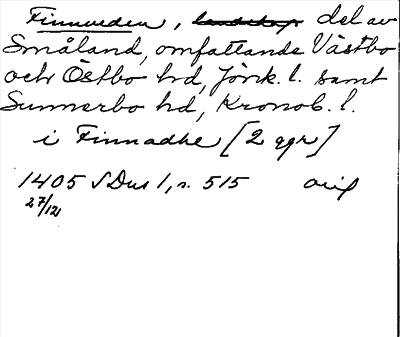 Finnveden, landskap del av
Småland, omfattande Västbo
och Östbo hd, Jönk. l. samt
Sunnerbo hd, Kronob. l.
i Finnadhe [2 ggr]
1405 SDns 1, s. 515 orig
27/12